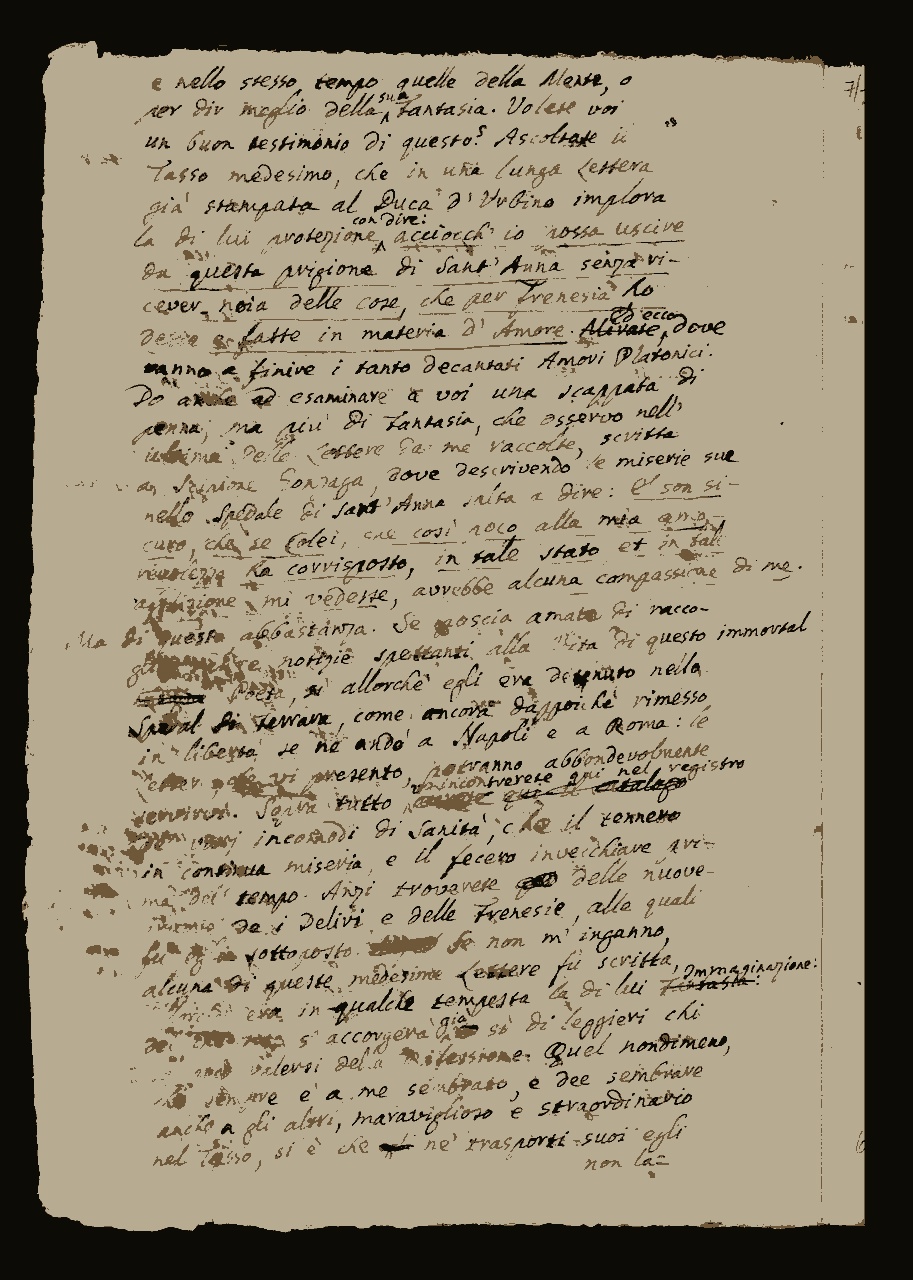 e nello stesso tempo quelle della Mente, o
per dir meglio della sua fantasia. Volete voi
un buon testimonio di questo? Ascoltate il
Tasso medesimo, che in una lunga Lettera
già stampata al Duca d'Urbino implora
la di lui protezione con dire: acciocch' io possa uscire
da questa prigione di Sant' Anna senza ri-
cever noia delle cose, che per frenesia ho
dette e fatte in materia d' Amore. Ed ecco, dove
vanno a finire i tanto decantati Amori Platonici.
Do anche ad esaminare a voi una scappata di
penna, ma più di fantasia, che osservo nell'
ultima delle Lettere da me raccolte, scritta
a Scipione Gonzaga, dove descrivendo le miserie sue
nello Spedale di Sant' Anna salta a dire: E son si-
curo, che se Colei, che così poco alla mia amo-
revolezza ha corrisposto, in tale stato et in tale
afflizione mi vedesse, avrebbe alcuna compassione di me.
Ma di questo abbastanza. Se poscia amate di racco-
gliere notizie spettanti alla Vita di questo immortal
Poeta, sì allorchè egli era detenuto nello
Spedal di Ferrara, come ancora dappoichè rimesso
in libertà se ne andò a Napoli e a Roma: le
Lettere vi presento, potranno abbondevolmente
servirvi. Sopra tutto rincontrerete qui nel registro
incomodi di Sanità, che il tennero
in continua miseria, e il fecero invecchiare pri-
ma del tempo. Anzi troverete delle nuove
de i Delirj e delle Frenesie, alle quali
fu egli sottoposto. Se non m' inganno,
alcuna di queste medesime Lettere fu scritta,
era in qualche tempesta la di lui Immaginazione:
s' accorgerà già so di leggieri chi
valersi della Riflessione. Quel nondimeno,
che sempre è a me sembrato, e dee sembrare
anche a gli altri, maraviglioso e straordinario
nel Tasso, si è che ne' trasporti suoi egli
non la=